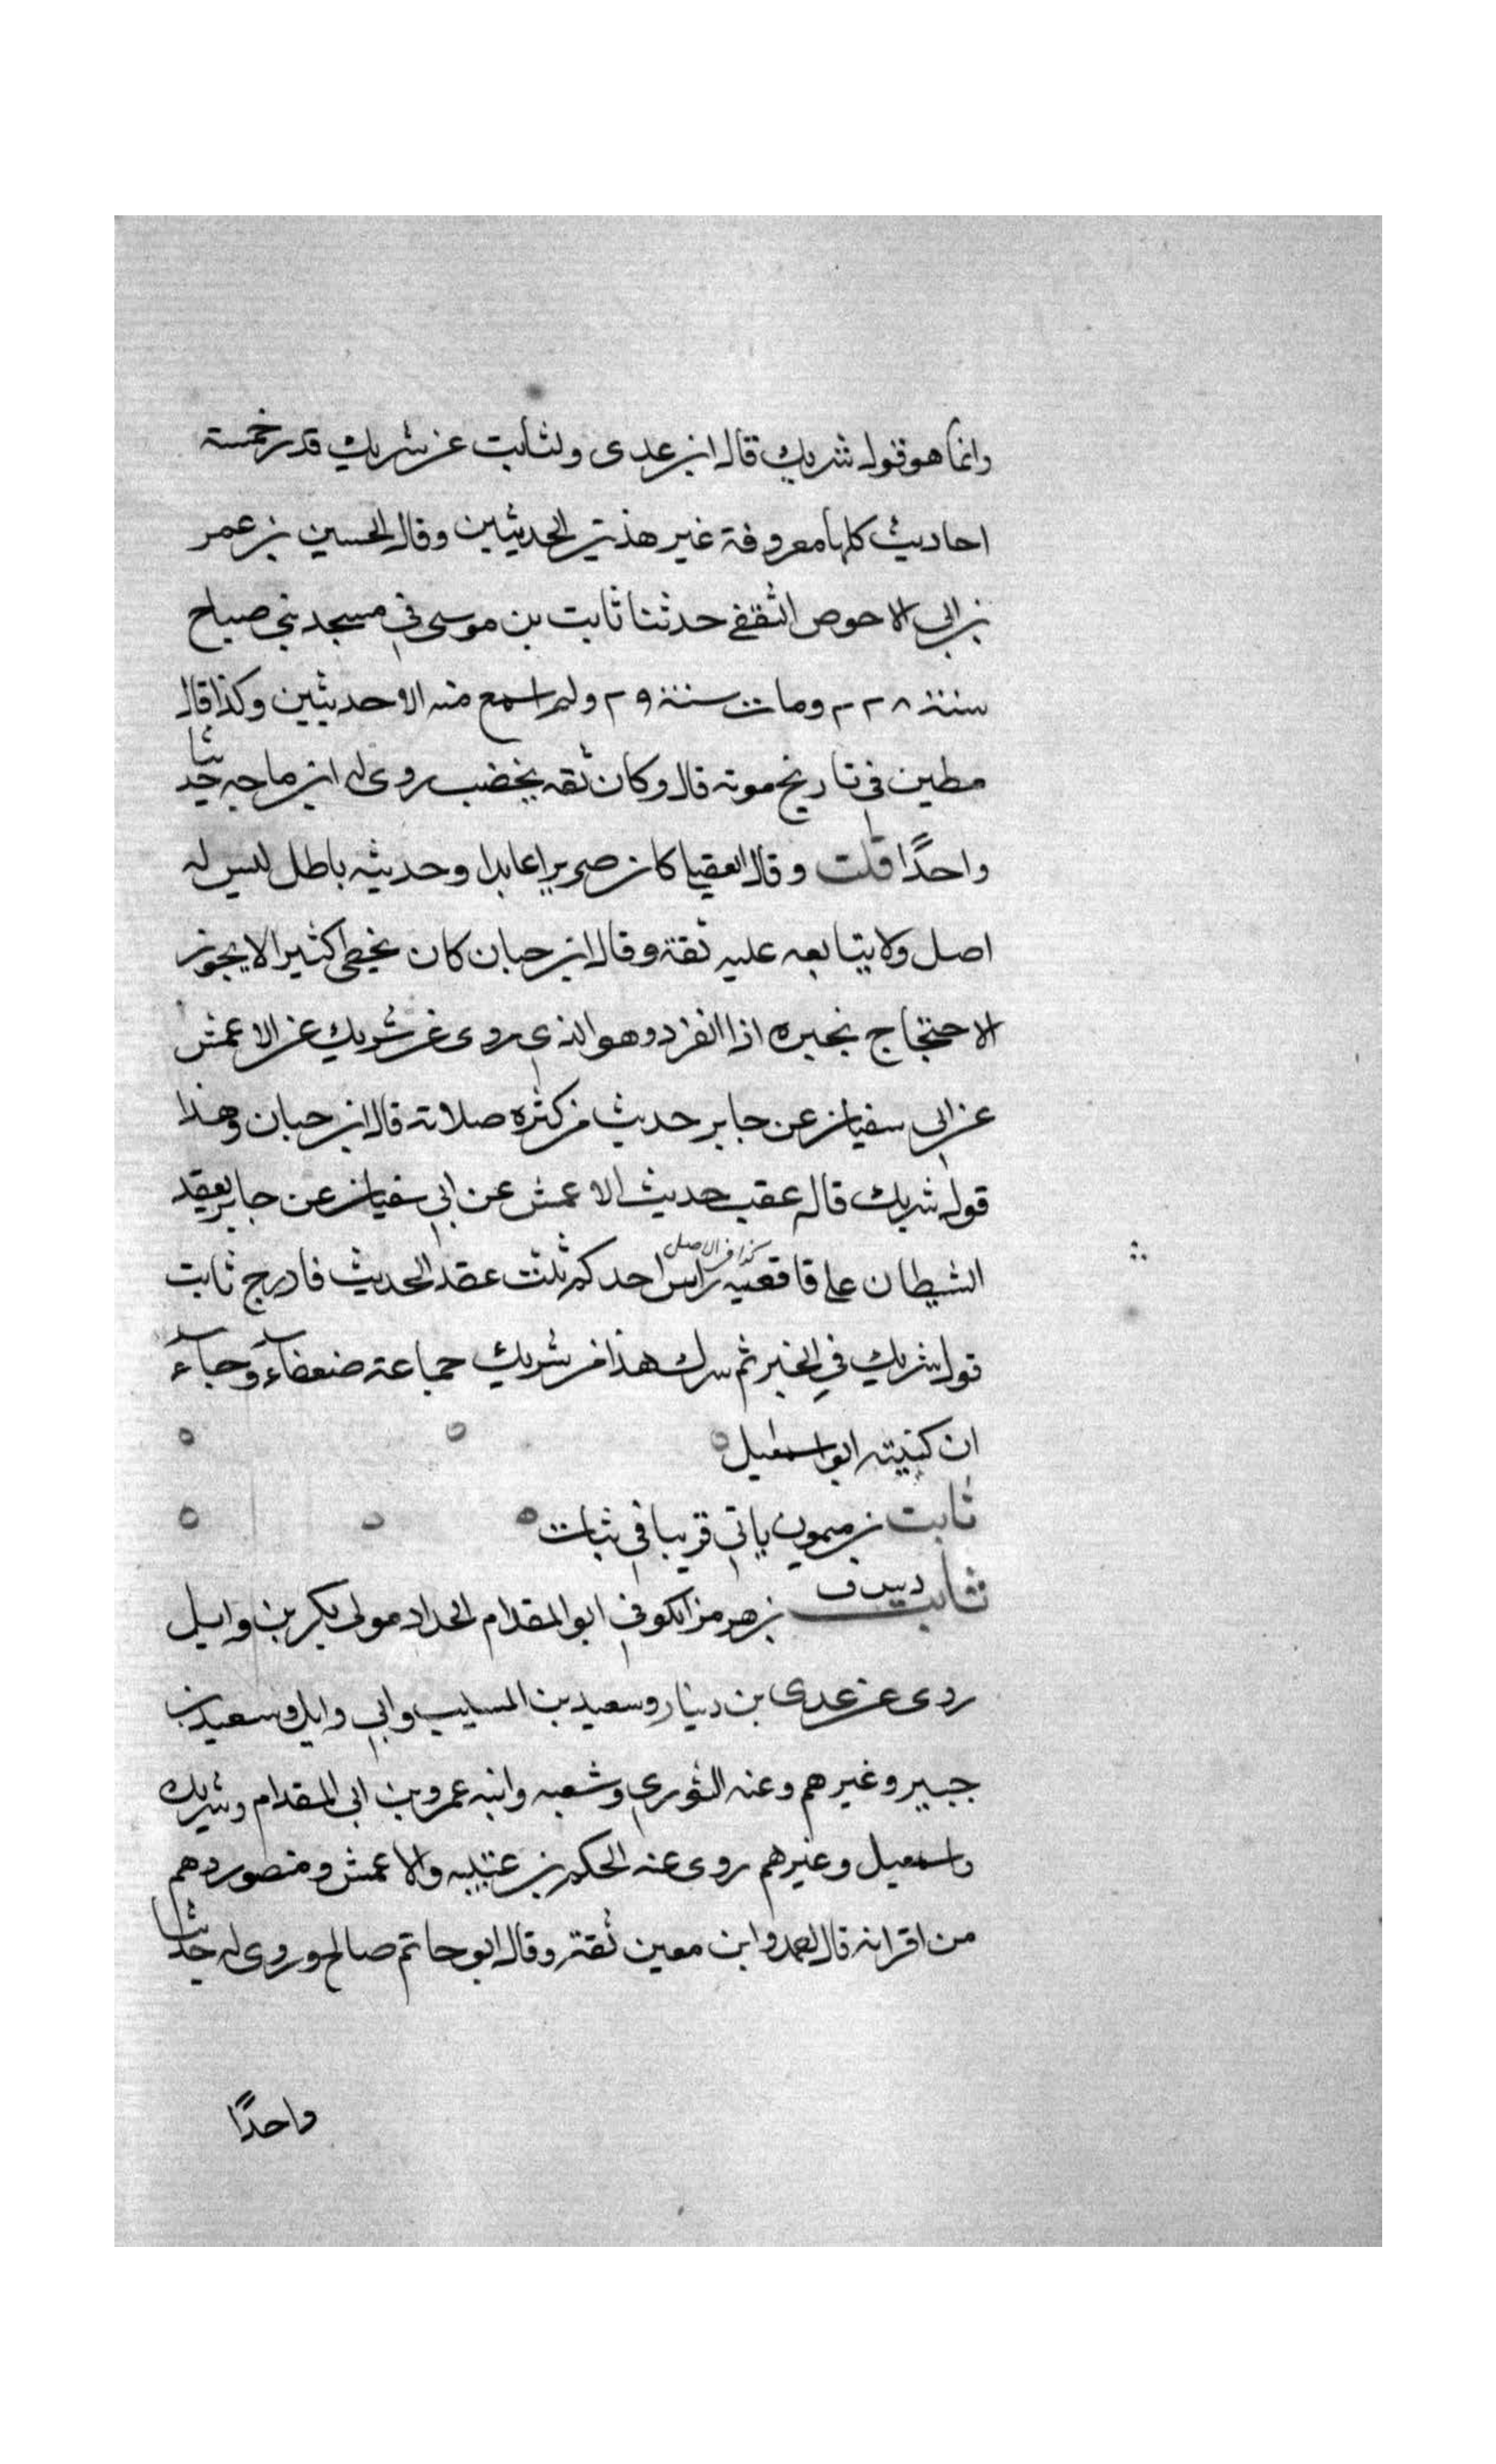 وانما هو قول شريك قال ابن عدى ولثابت عن شريك قدر خمسة
احاديث كلها معروفة غير هذين الحديثين وقال الحسين بن عمر
بن ابى الاحوص الثقفى حدثنا ثابت بن موسى فى مسجد بنى صباح
سنة ٢٢٨ ومات سنة ٢٩ ولم اسمع منه الا حديثين وكذا قال
مطين فى تاريخ موته قال وكان ثقه يخضب روى له ابن ماجه حديثا
واحدًا قلت وقال العقيلى كان ضريرا عابدا وحديثه باطل ليس له
اصل ولا يتابعه عليه ثقة وقال ابن حبان كان يخطى كثيرا لا يجوز
الاحتجاج بخبره اذا انفرد وهو الذى روى عن شريك عن الاعمش
عن ابى سفيان عن جابر حديث من كثره صلاته قال ابن حبان وهذا
قول شريك قاله عقب حديث الاعمش عن ابى سفيان عن جابر يعقد
الشيطان على قافعيه راس احدكم ثلث عقد الحديث فادرج ثابت
كذا فى الاصل
قول شريك فى الخبر ثم سرك هذا من شريك جماعة ضعفاء وجاء
ان كنيته ابو اسمعيل
ثابت بن ميمون ياتى قريبا فى ثبات
ثابت بن هرمز الكوفى ابو المقدام الحداد مولى بكر بن وايل
د س ق
روى عن عدى بن دينار وسعيد بن المسيب وابى وايل وسعيد بن
جبير وغيرهم وعنه الثورى وشعبه وابنه عمرو بن ابى المقدام وشريك
واسمعيل وغيرهم روى عنه الحكم بن عتيبه والاعمش ومنصور وهم
من اقرانه قال احمد وابن معين ثقة وقال ابو حاتم صالح وروى له حديثا
واحدًا